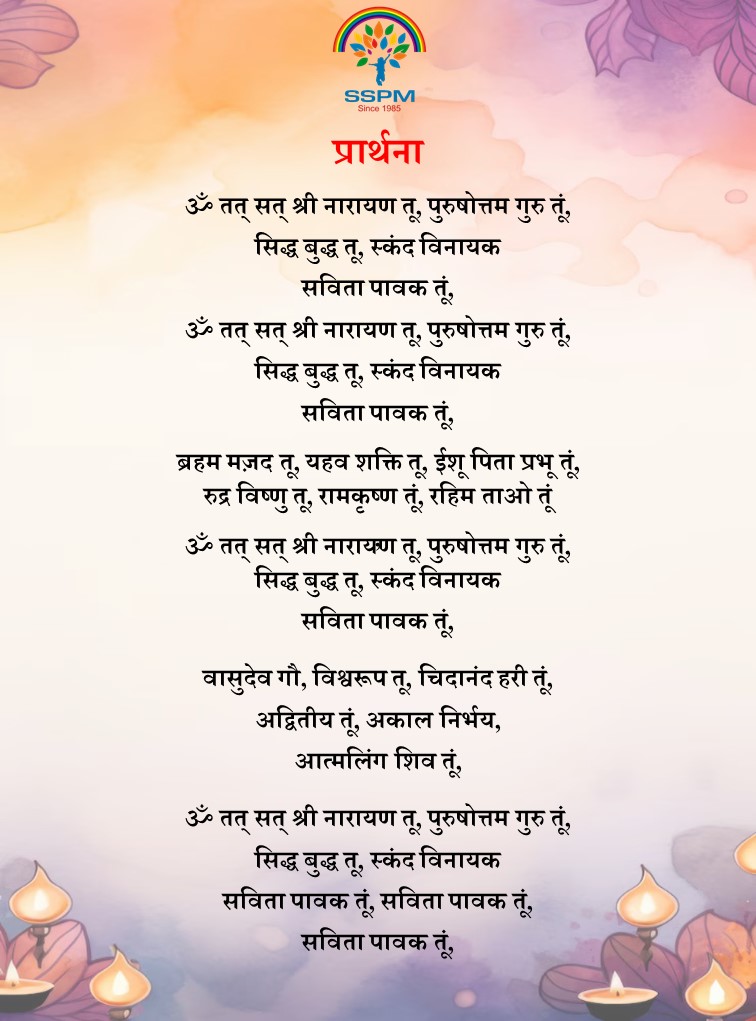 SSPM
Since 1985
प्रार्थना
ॐ तत् सत् श्री नारायण तू, पुरुषोत्तम गुरु तूं,
सिद्ध बुद्ध तू, स्कंद विनायक
सविता पावक तूं,
ॐ तत् सत् श्री नारायण तू, पुरुषोत्तम गुरु तूं,
सिद्ध बुद्ध तू, स्कंद विनायक
सविता पावक तूं,
ब्रहम मज़द तू, यहव शक्ति तू, ईशू पिता प्रभू तूं,
रुद्र विष्णु तू, रामकृष्ण तूं, रहिम ताओ तूं
ॐ तत् सत् श्री नारायण तू, पुरुषोत्तम गुरु तूं,
सिद्ध बुद्ध तू, स्कंद विनायक
सविता पावक तूं,
वासुदेव गौ, विश्वरूप तू, चिदानंद हरी तूं,
अद्वितीय तूं, अकाल निर्भय,
आत्मलिंग शिव तूं,
ॐ तत् सत् श्री नारायण तू, पुरुषोत्तम गुरु तूं,
सिद्ध बुद्ध तू, स्कंद विनायक
सविता पावक तूं, सविता पावक तूं,
सविता पावक तूं,